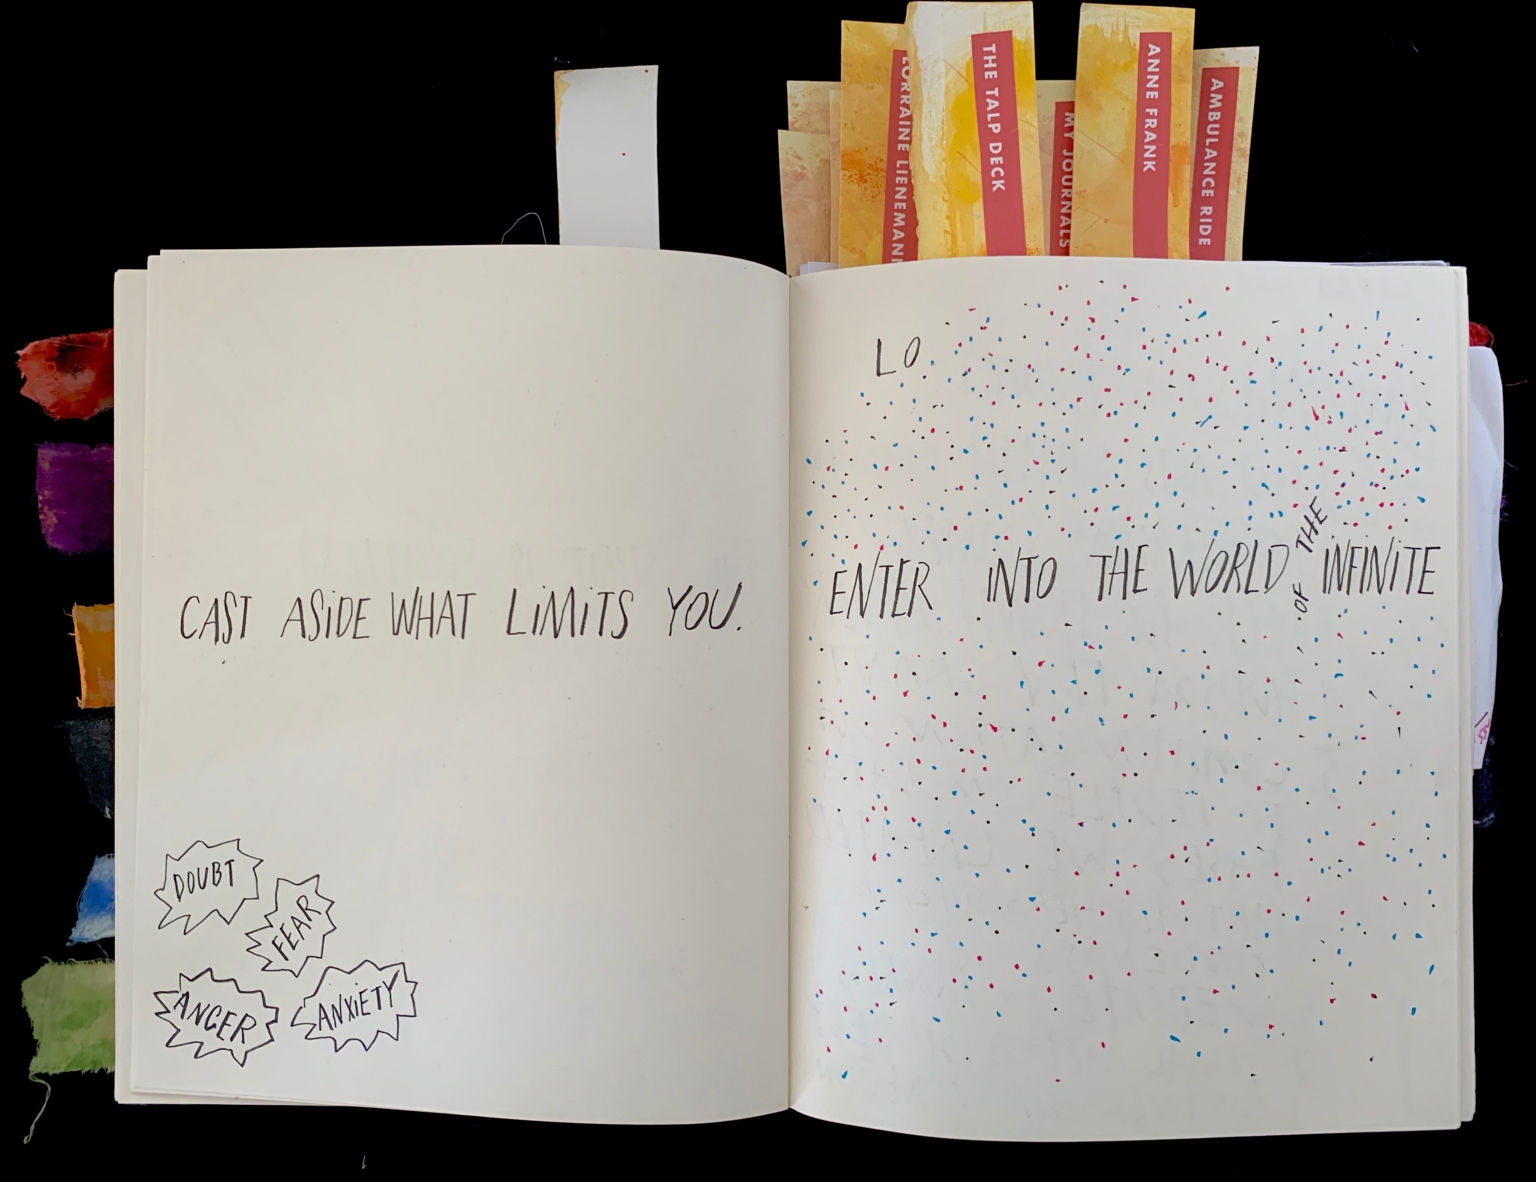 LORRAINE LIENEMANN
THE TALP DECK
MY JOURNALS
ANNE FRANK
AMBULANCE RIDE
CAST ASIDE WHAT LiMiTS YOU.
DOUBT
FEAR
ANGER
ANXiETY
LO
ENTER iNTO THE WORLD OF THE iNFiNiTE